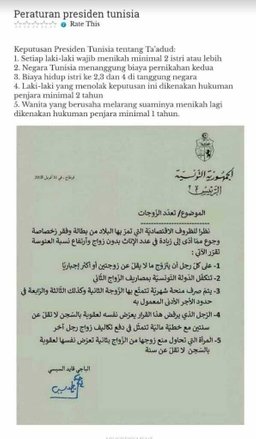 Peraturan presiden tunisia
Rate This
Keputusan Presiden Tunisia tentang Ta'adud:
1. Setiap laki-laki wajib menikah minimal 2 istri atau lebih
2. Negara Tunisia menanggung biaya pernikahan kedua
3. Biaya hidup istri ke 2,3 dan 4 di tanggung negara
4. Laki-laki yang menolak keputusan ini dikenakan hukuman
penjara minimal 2 tahun
5. Wanita yang berusaha melarang suaminya menikah lagi
dikenakan hukuman penjara minimal 1 tahun.
الجمهورية التونسية
الرئيس
الموضوع/ تعدد الزوجات
نظرا للظروف الاقتصادية التي تمر بها البلاد من بطالة وفقر خصاصة
وجوع مما أدى إلى زيادة في عدد الإناث بدون زواج وارتفاع نسبة العنوسة
تقرر الآتي:
1- على كل رجل أن يتزوج ما لا يقل عن زوجتين أو أكثر إجباريا
2- تتكفل الدولة التونسية بمصاريف الزواج الثاني
3- يتم صرف منحة شهرية تتمتع بها الزوجة الثانية وكذلك الثالثة والرابعة في
حدود الأجر الأدنى المعمول به
4- الرجل الذي يرفض هذا القرار يعرض نفسه لعقوبة بالسجن لا تقل عن
سنتين مع خطية مالية تتمثل في دفع تكاليف زواج رجل آخر
5- المرأة التي تحاول منع زوجها من الزواج بثانية تعرض نفسها لعقوبة
بالسجن لا تقل عن سنة
الباجي قايد السبسي